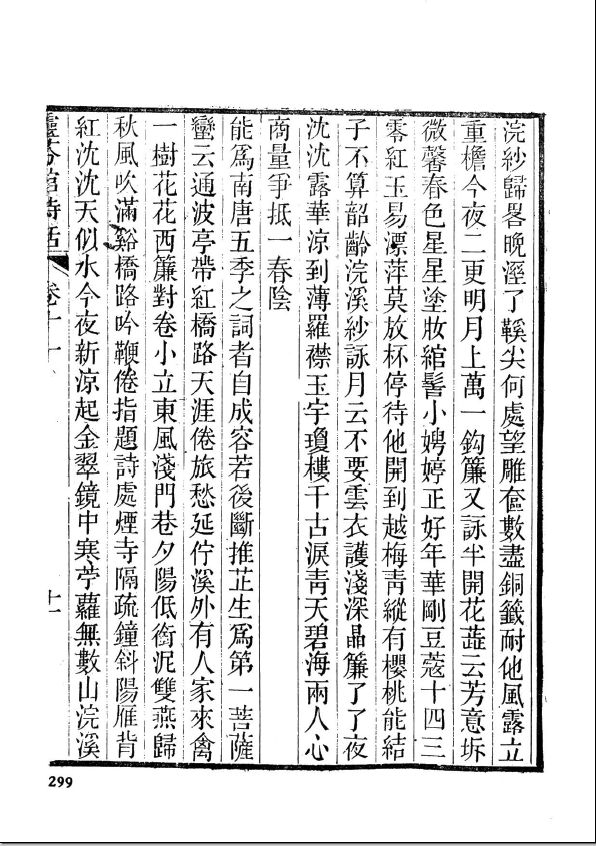 浣紗歸畧晚溼了鞵尖何處望雕奩數盡銅籤耐他風露立
重檐今夜二更明月上萬一鈎簾又詠半開花蕋云芳意坼
微馨春色星星塗妝綰髻小娉婷正好年華剛豆蔻十四三
零紅玉易漂萍莫放杯停待他開到越梅靑縱有櫻桃能結
子不算韶齡浣溪紗詠月云不要雲衣護淺深晶簾了了夜
沈沈露華涼到薄羅襟玉宇瓊樓千古淚靑天碧海兩人心
商量爭抵一春陰
能爲南唐五季之詞者自成容若後斷推芷生爲第一菩薩
蠻云通波亭帶紅橋路天涯倦旅愁延佇溪外有人家來禽
一樹花花西簾對卷小立東風淺門巷夕陽低銜泥雙燕歸
秋風吹滿谿橋路吟鞭倦指題詩處煙寺隔疏鐘斜陽雁背
紅沈沈天似水今夜新涼起金翠鏡中寒苧蘿無數山浣溪
靈芬館詩話 卷十一 十一
299